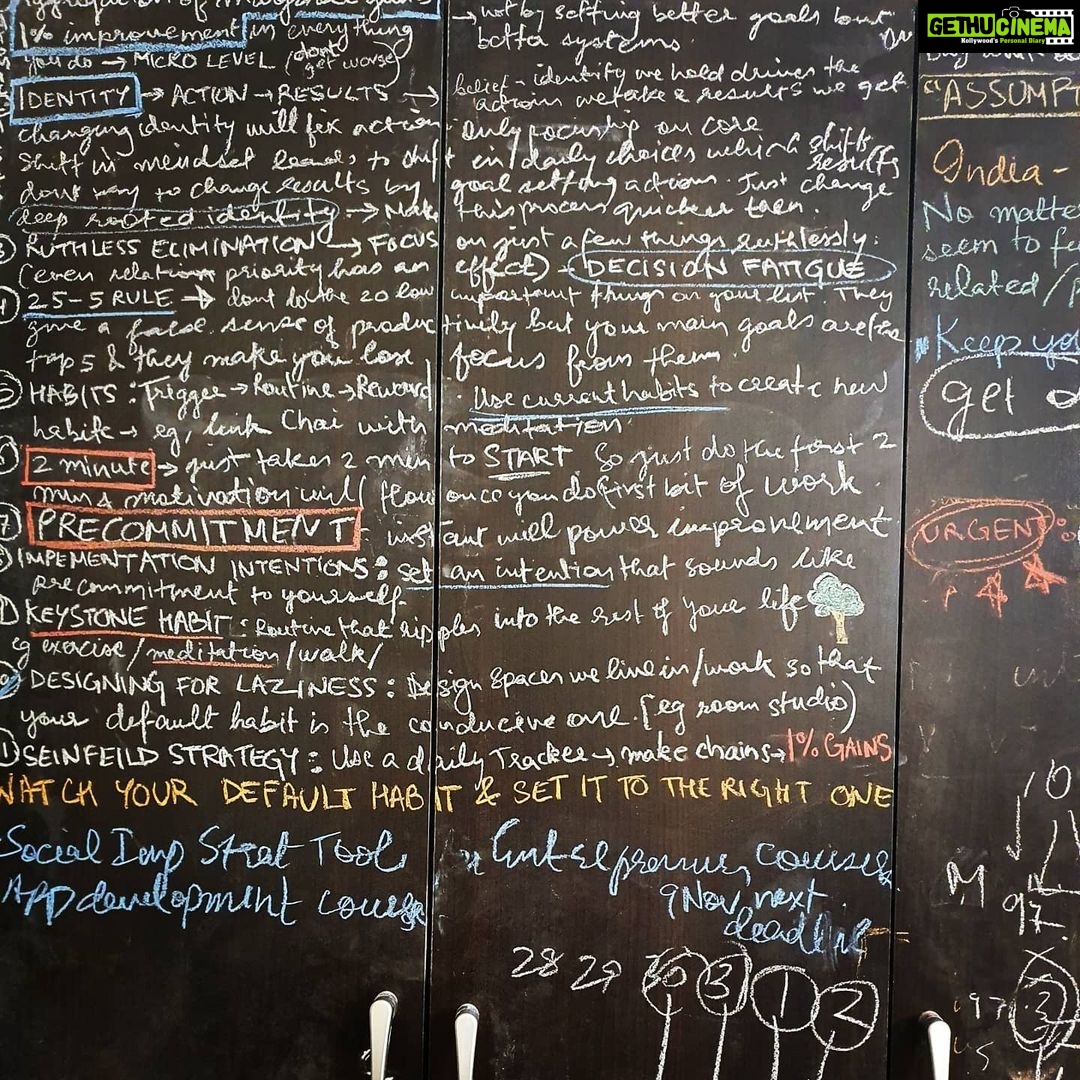 1% improvement in everything
you do → MICRO LEVEL (dont get worse)
→ not by setting better goals but
better systems
IDENTITY → ACTION → RESULTS → belief - identity we hold drives the
actions we take & results we get
changing identity will fix action
only focus on core
Shift in mindset leads to shift in daily choices which shifts results
dont try to change results by goal setting actions. Just change
deep rooted identity → Make this process quicker
RUTHLESS ELIMINATION → FOCUS on just a few things ruthlessly.
(even relation priority has an effect) - DECISION FATIGUE
4 25-5 RULE → dont do the 20 low important things on your list. They
give a false sense of productivity but your main goals are the
top 5 & they make you lose focus from them.
HABITS : Trigger → Routine → Reward. Use current habits to create new
habits → eg, link Chai with meditation.
2 minute → just takes 2 min to START. So just do the first 2
mins & motivation will flow once you do first bit of work.
7 PRECOMMITMENT - instant will power improvement
IMPEMENTATION INTENTIONS : set an intention that sounds like
precommitment to yourself.
KEYSTONE HABIT : Routine that ripples into the rest of your life
eg exercise/meditation/walk/
DESIGNING FOR LAZINESS : Design spaces we live in/work so that
your default habit is the conducive one. (eg room studio)
SEINFEILD STRATEGY : Use a daily Tracker → make chains → 1% GAINS
WATCH YOUR DEFAULT HABIT & SET IT TO THE RIGHT ONE
Social Imp Strat Tool
App development course
Entrepreneur courses
9 Nov next
deadline
28 29 30 31 1 2
GETHUCINEMA
Kollywood's Personal Diary
"ASSUMPT
India -
No matte
seem to fe
related/p
Keep yo
get
URGENT
10
M
97
97